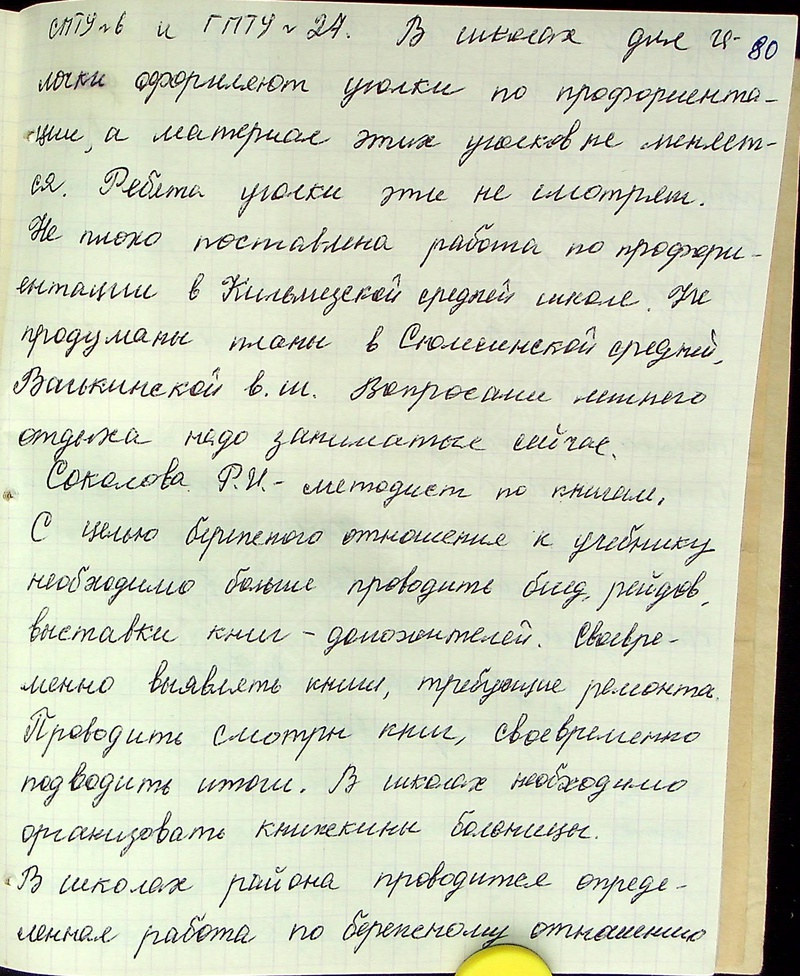 СПТУ №6 и ГПТУ №27. В школах для га- 80
лочки оформляют уголки по профориента-
ции, а материал этих уголков не меняет-
ся. Ребята уголки эти не смотрят.
Не плохо поставлена работа по профори-
ентации в Кильмезской средней школе. Не
продуманы планы в Сюмсинской средней,
Васькинской в.ш. Вопросами летнего
отдыха надо заниматься сейчас.
Соколова Р.И. - методист по книгам.
С целью бережного отношения к учебнику
необходимо больше проводить бесед, рейдов,
выставки книг - долгожителей. Своевре-
менно выявлять книги, требующие ремонта.
Проводить смотры книг, своевременно
подводить итоги. В школах необходимо
организовать книжкины больницы.
В школах района проводится опреде-
ленная работа по бережному отношению